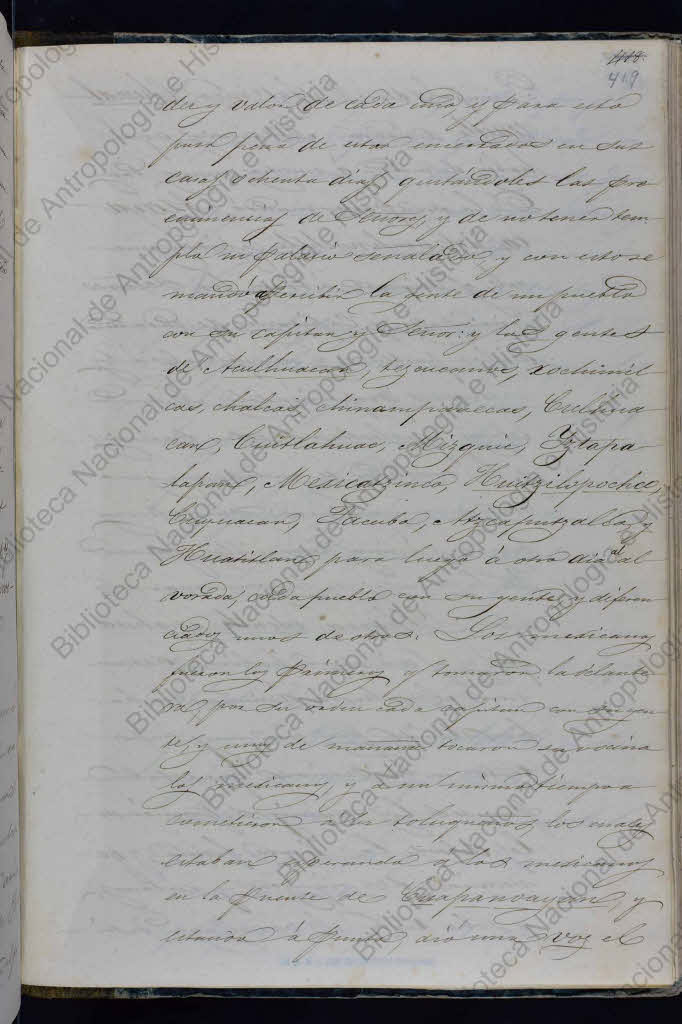 418.
419
der y valor de cada uno, y para esto
pusó pena de estar encerrados en sus
casas ochenta dias, quitándoles las pre
eminencias de Señores, y de no tener tem-
plo ni palacio señalado, y con esto se
mandó apercibir la gente de un pueblo
con su capitan y Señor: y las gentes
de Aculhuacan, tezcucanos, xochimil
cas, chalcas, chinampanecas, Culhua
can, Cuitlahuac, Mizquic, Yztapa
lapan, Mexicatzinco, Huitzilopochco,
Cuyuacan, Tacuba, Atzcaputzalco, y
Huatitlan para luego á otro dia al al
vorada, cada pueblo con su gente, y diferen
ciados unos de otros. Los mexicanos
fueron los primeros q tomaron la delante
ra, por su orden cada capitan con su gen
te, y muy de mañana tocaron su vocina
los mexicanos, y á un mismo tiempo a
cometieron á los toluqueños los cuales
estaban esperando á los mexicanos
en la puente de Cuapanoayan, y
estando á punto, dió una voz el
Biblioteca Nacional de Antropología e Historia